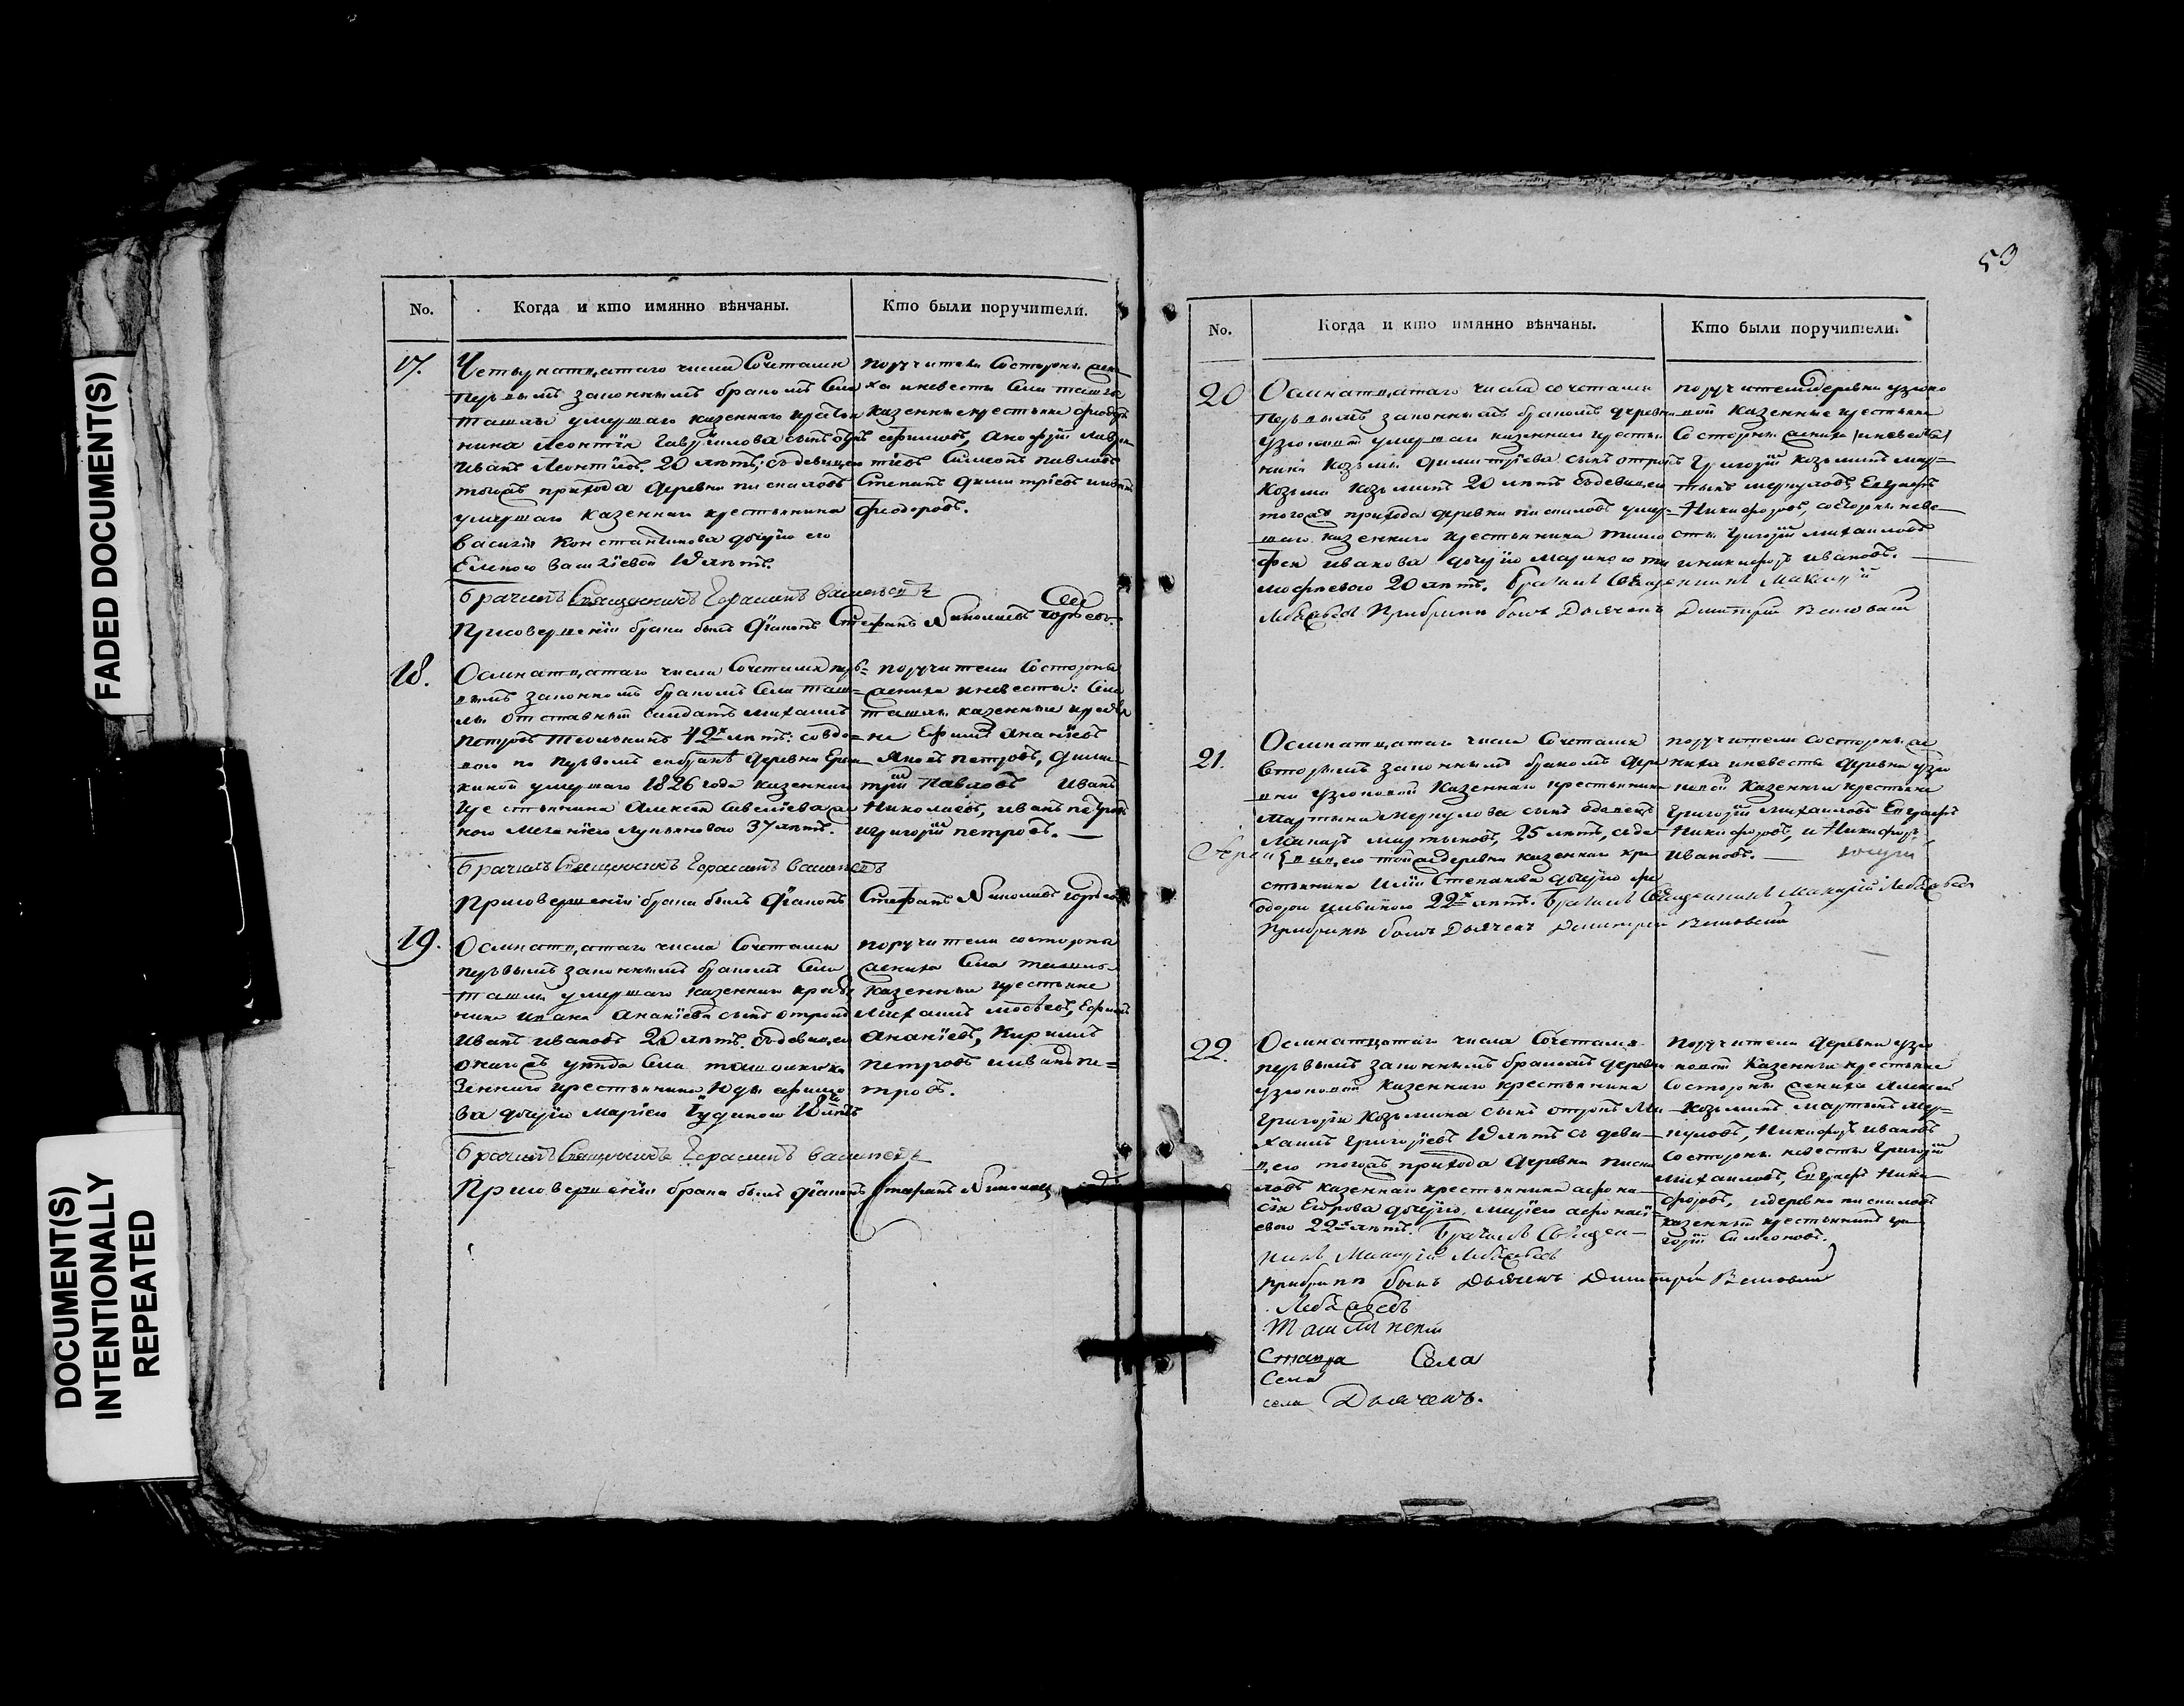 FADED DOCUMENT(S)
DOCUMENT(S)
INTENTIONALLY
REPEATED
No.
Когда и кто имянно вѣнчаны.
Кто были поручители.
17.
Четырнатцатаго числа Сочетались
первымъ законнымъ бракомъ Села
ташлы умершаго казеннаго крестья
нина Леонтія Гаврилова сынъ
Иванъ Леонтіевъ, 20 лѣтъ, съ девицею
тогожъ прихода деревни пискаловъ
умершаго казеннаго крестьянина
Василія Константинова дочерію его
Еленою Васильевой 19 лѣтъ.
поручители Со стороны жени
ха и невесты Села ташлы
казенные крестьяне Феодоръ
Ефимовъ,
Симеонъ Павловъ
Степанъ Димитріевъ
Феодоровъ.
Брачилъ Священникъ Герасимъ
При совершеніи брака былъ діаконъ Стефанъ Николаевъ
18.
Осмнатцатаго числа Сочетался пер=
вымъ законномъ бракомъ Села таш=
лы отставный солдатъ михаилъ
Петровъ 42х лѣтъ: со вдо=
вою по первомъ ея бракѣ деревни
умершаго 1826 года казеннаго
крестьянина Алексея Савельева
37 лѣтъ.
поручители Со стороны
жениха и невесты: Села
ташлы казенные крестья
не Ефимъ Ананіевъ
петровъ, Дими=
трій Павловъ Иванъ
Николаевъ, иванъ петровъ
и григорій петровъ.
Брачилъ Священникъ Герасимъ
При совершеніи брака былъ діаконъ Стефанъ Николаевъ
19.
Осмнатцатаго числа Сочетался
первымъ законнымъ бракомъ Села
ташлы умершаго казеннаго крестья
нина Ивана Ананіева сынъ отрокъ
Иванъ Ивановъ 20 лѣтъ. съ девицею
уезда Села
зеннаго крестьянина Юды ефимо
ва дочерію Маріею Іудиною 18 лѣтъ
поручители со стороны
жениха Села ташлы
казенныи крестьяне
Михаилъ Ефимъ
Ананіевъ, Кирилъ
петровъ и иванъ пе=
тровъ.
Брачилъ Священникъ Герасимъ
При совершеніи брака былъ діаконъ Стефанъ Николаевъ
53
No.
Когда и кто имянно вѣнчаны.
Кто были поручители.
20
Осмнатцатаго числа сочетались
первымъ законнымъ бракомъ деревни
Узюковой умершаго казеннаго крестья
нина Козьмы димитріева сынъ отрокъ
Козьма Козьминъ 20 лѣтъ съ девицею
тогожъ прихода деревни пискаловъ умер=
шаго казеннаго крестьянина тимо
фея иванова дочерію Мариною ти
мофеевою 20 лѣтъ. Брачилъ Священникъ Макарій
Лебедевъ При бракѣ былъ Дьячекъ Димитрій
поручители деревни узюко
вой казенные крестьяне
Со стороны жениха (и невесты)
Григорій Козьминъ мар=
тынъ меркуловъ, Евграфъ
Никифоровъ, со стороны неве=
сты Григорій михаиловъ
и никифоръ ивановъ.
21.
Осмнатцатаго числа Сочетался
вторымъ законнымъ бракомъ дере
вни узюковой казеннаго крестьянина
Мартына меркулова сынъ вдовецъ
Макаръ мартыновъ, 25 лѣтъ, съ де
вицею тойже деревни казеннаго кре
стьянина Иліи Степанова дочерію фе
одорою ильиною 22х лѣтъ. Брачилъ Священникъ Макарій Лебедевъ
При бракѣ былъ Дьячекъ Димитрій
поручители со стороны же
ниха и невесты деревни узю
ковой казенныи крестьяне
Григорій михаиловъ Евграфъ
Никифоровъ, и Никифоръ
Ивановъ.
22.
Осмнатцатаго числа Сочетался
первымъ законнымъ бракомъ деревни
узюковой казеннаго крестьянина
Григорія Козьмина сынъ отрокъ Ми
хаилъ Григоріевъ 19 лѣтъ съ деви=
цею тогожъ прихода деревни писка
ловъ казеннаго крестьянина афона
сія Егорова дочерію, маріею афонасі
евою 22х лѣтъ. Брачилъ Священ=
никъ Макарій Лебедевъ
При бракѣ былъ Дьячекъ Димитрій
поручители деревни узю
ковой казенныи крестьяне
Со стороны жениха Алексей
Козьминъ мартынъ мер=
куловъ, Никифоръ ивановъ
Со стороны невесты Григорій
михаиловъ, Евграфъ Ники
форовъ, и деревни пискаловъ
казенный крестьянинъ гри
горій Симеоновъ.
Лебедевъ
Села
Села
села Дьячекъ.